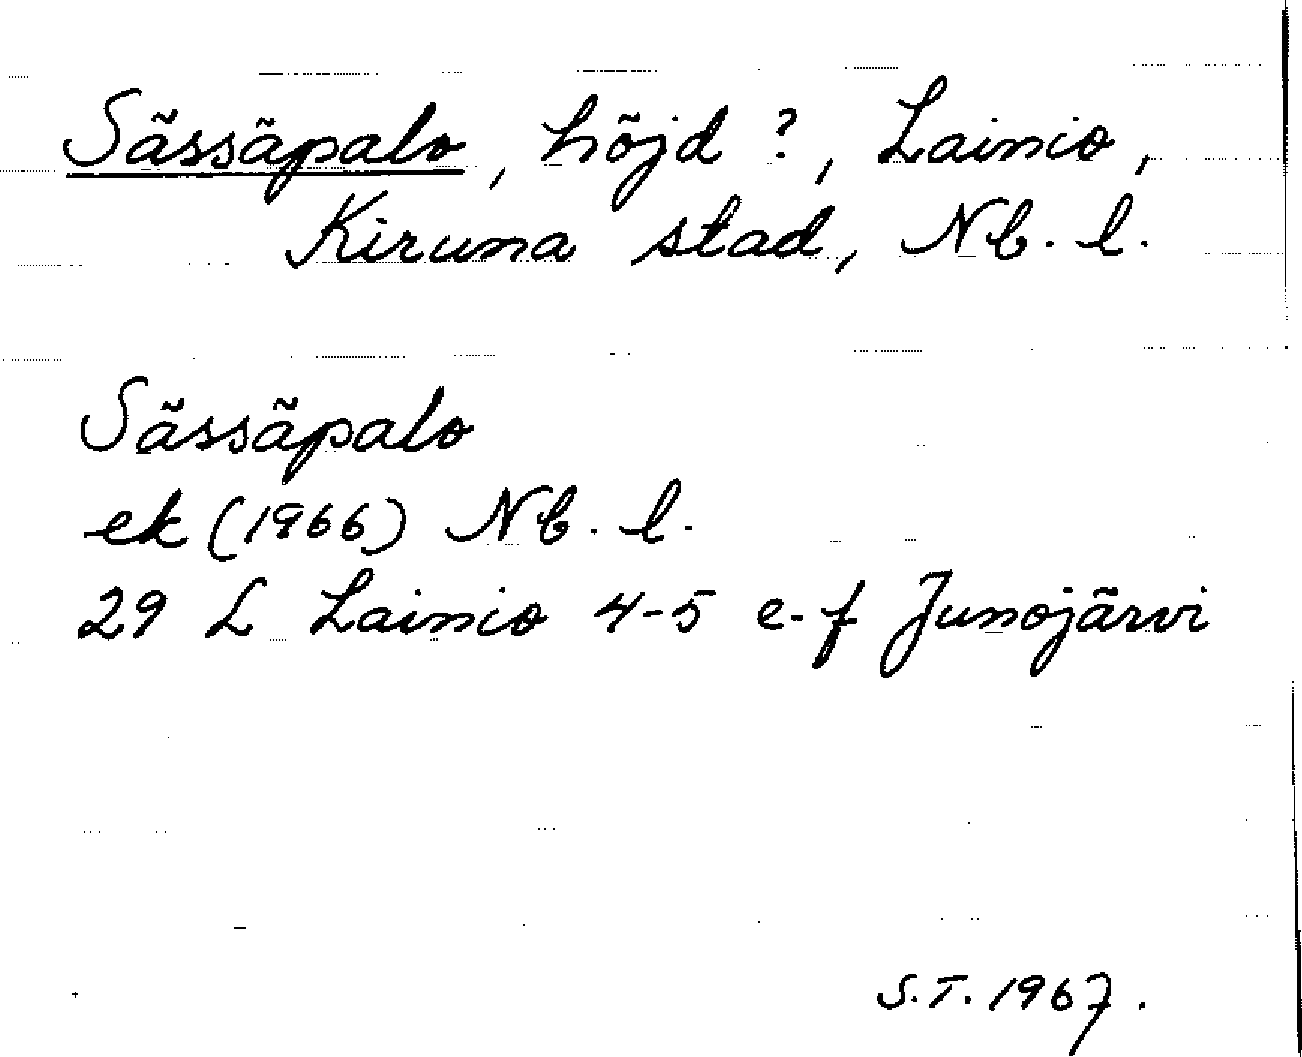 Sässäpalo, höjd ?, Lainio,
Kiruna stad, Nb. l.
Sässäpalo
ek (1966) Nb. l.
29 L Lainio 4-5 e-f Junojärvi
S.T. 1967.